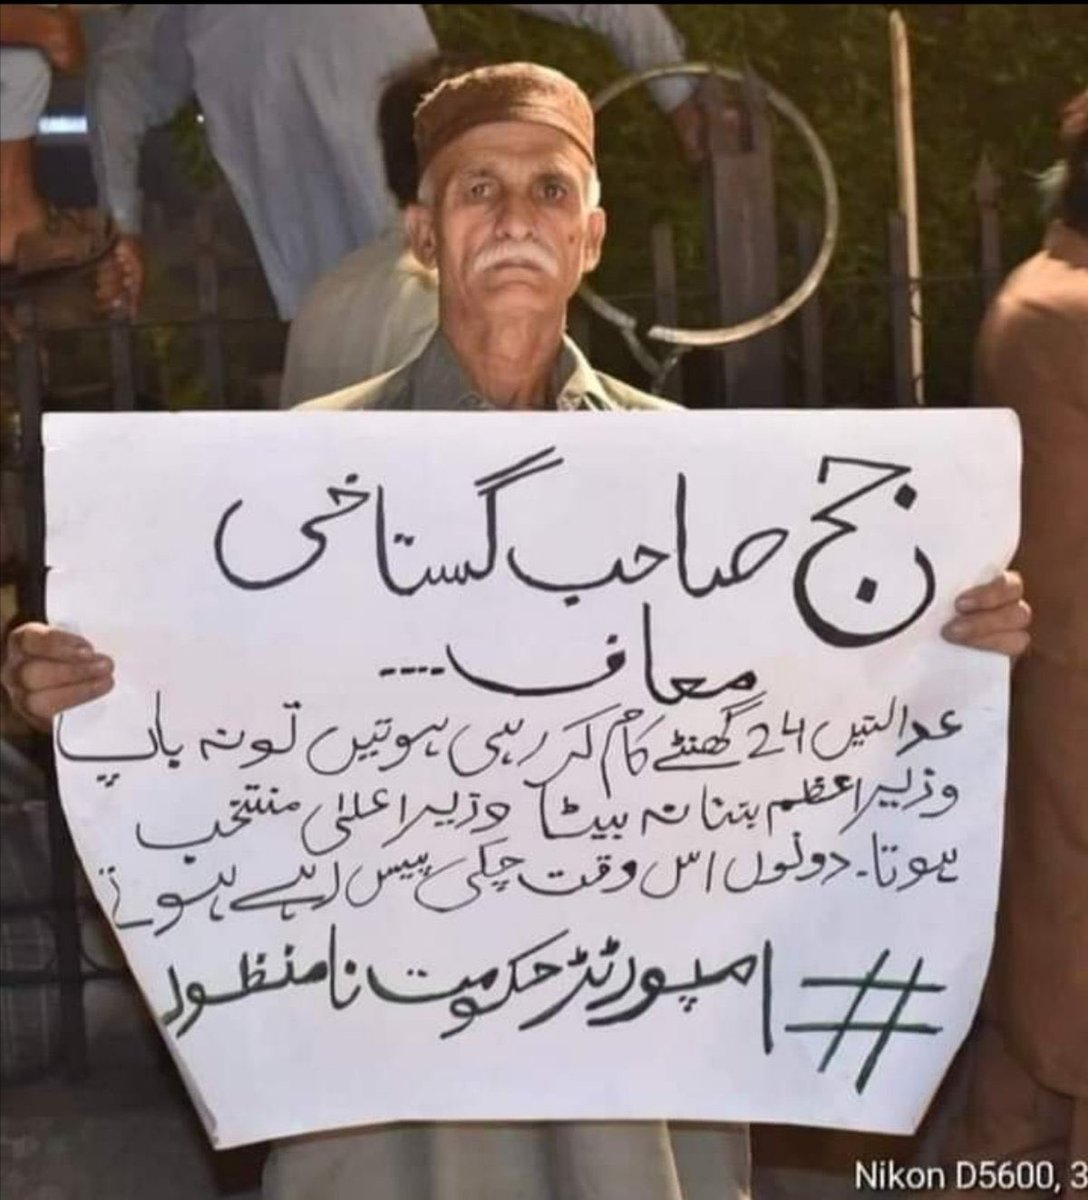 جج صاحب گستاخی
معاف ....
عدالتیں 24 گھنٹے کام کر رہی ہوتیں تو نہ باپ
وزیر اعظم بنتا نہ بیٹا وزیر اعلیٰ منتخب
ہوتا۔ دونوں اس وقت چکی پیس رہے ہوتے
# امپورٹڈ حکومت نامنظور
Nikon D5600, 3